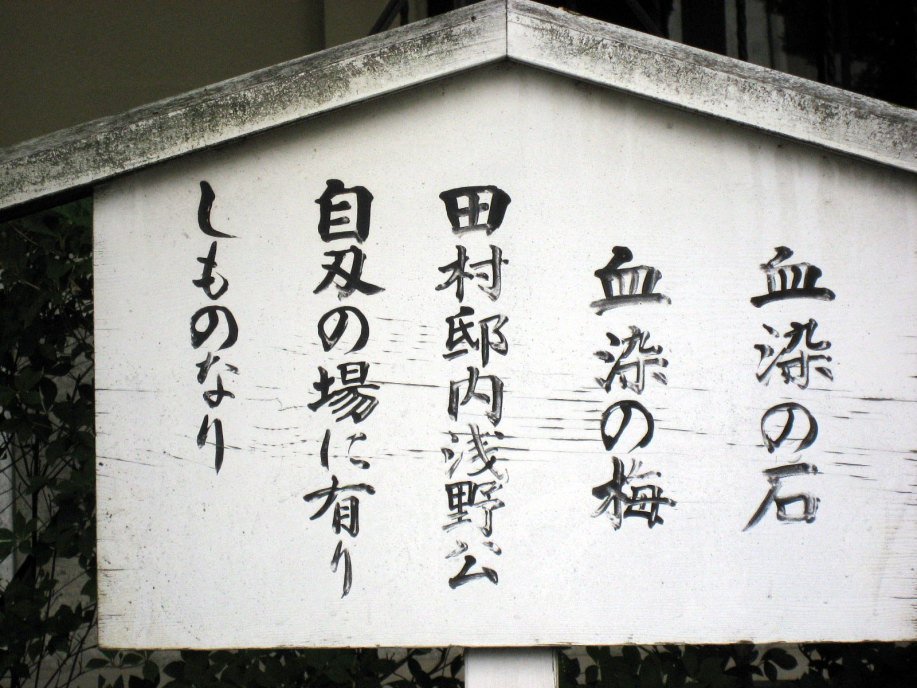 血染の石
血染の梅
田村邸内浅野公
自刃の場に有り
しものなり